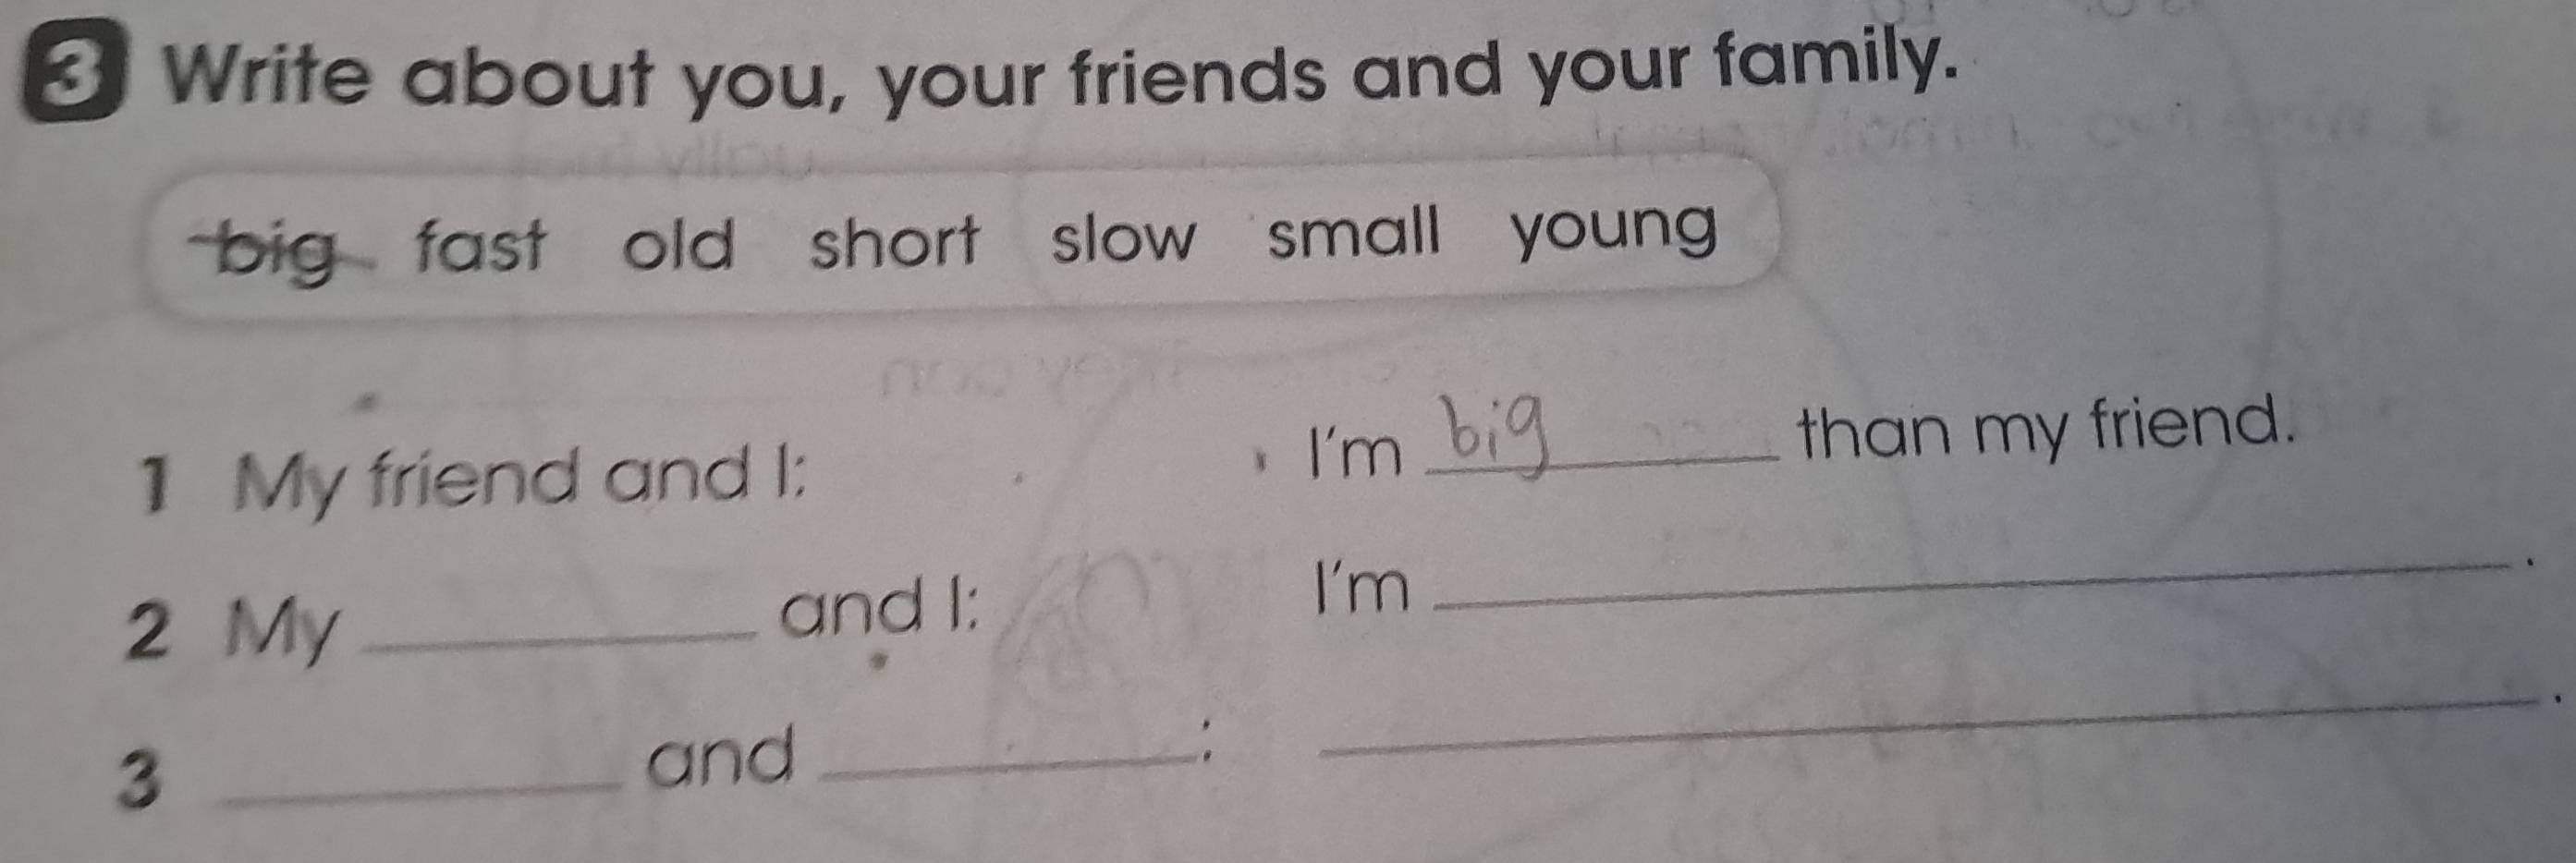 3 Write about you, your friends and your family.
big fast old short slow small young
1 My friend and I: I'm big than my friend.
2 My ____ and I: I'm ____.
3 ____ and ____: ____.